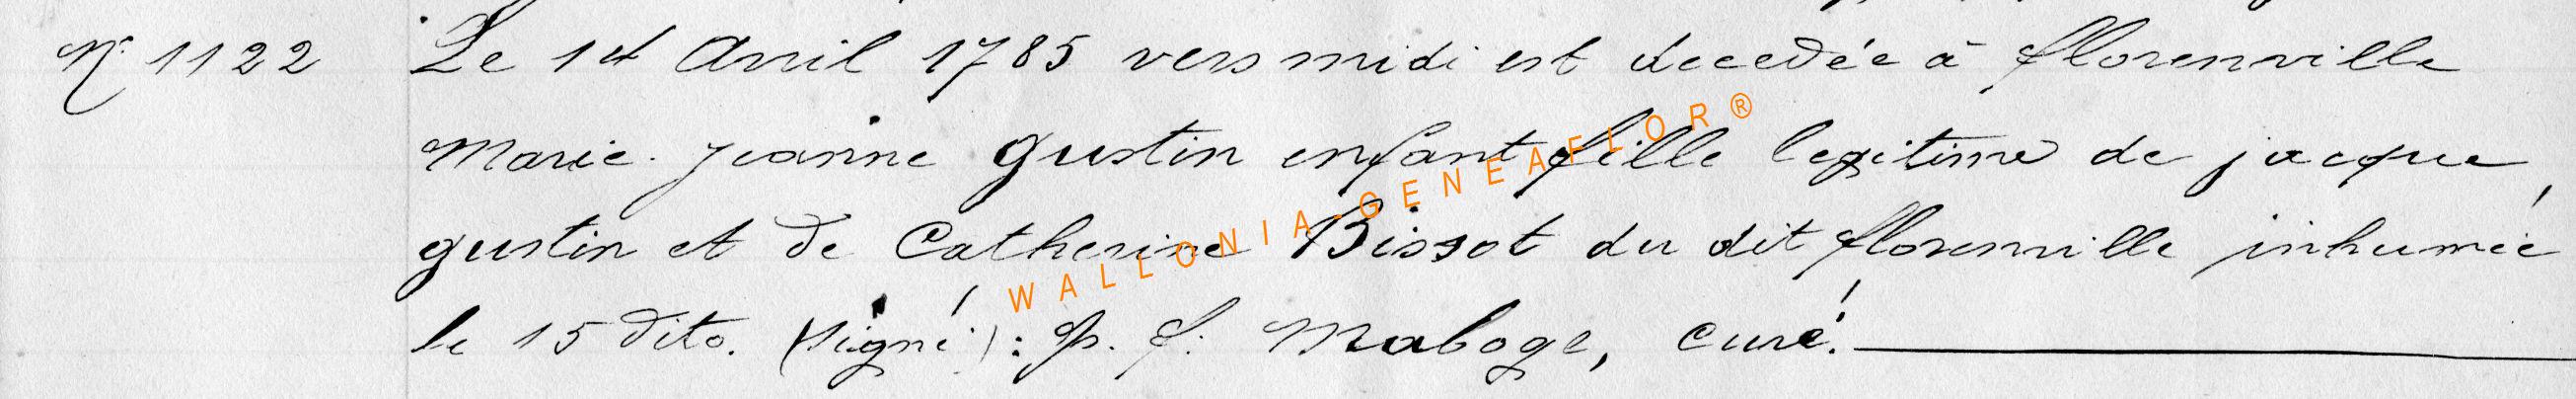 N° 1122 Le 14 Avril 1785 vers midi est decedée à florenville
Marie. jeanne gustin enfant fille legitime de jacque
gustin et de Catherine Bissot du dit florenville inhumée
le 15 dito. (signé): p. f. Maboge, curé.
WALLONIA-GENEAFLOR®